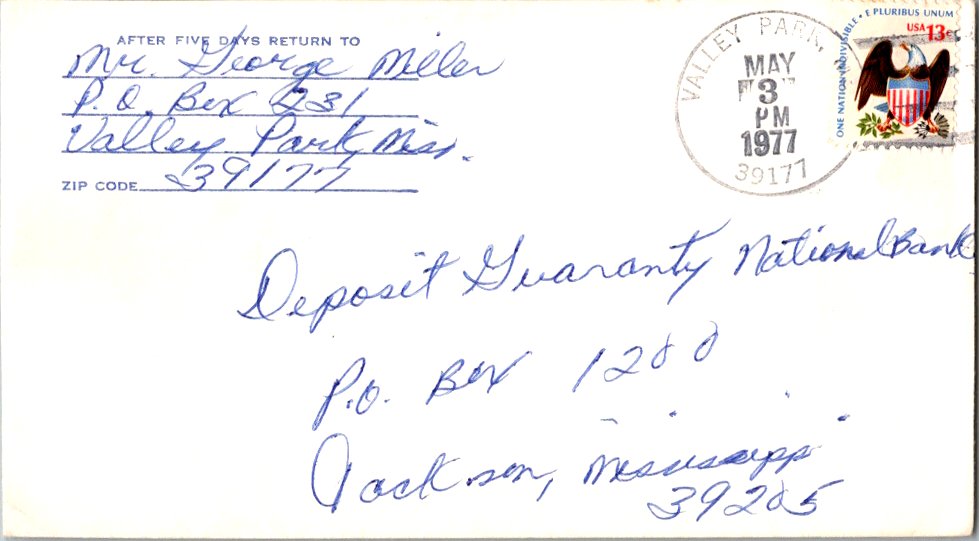 AFTER FIVE DAYS RETURN TO
Mr. George Miller
P.O. Box 231
Valley Park, Miss.
ZIP CODE 39177
VALLEY PARK,
MAY
3
PM
1977
39177
ONE NATION INDIVISIBLE • E PLURIBUS UNUM
USA 13c
Deposit Guaranty National Bank
P.O. Box 1200
Jackson, Mississippi
39205